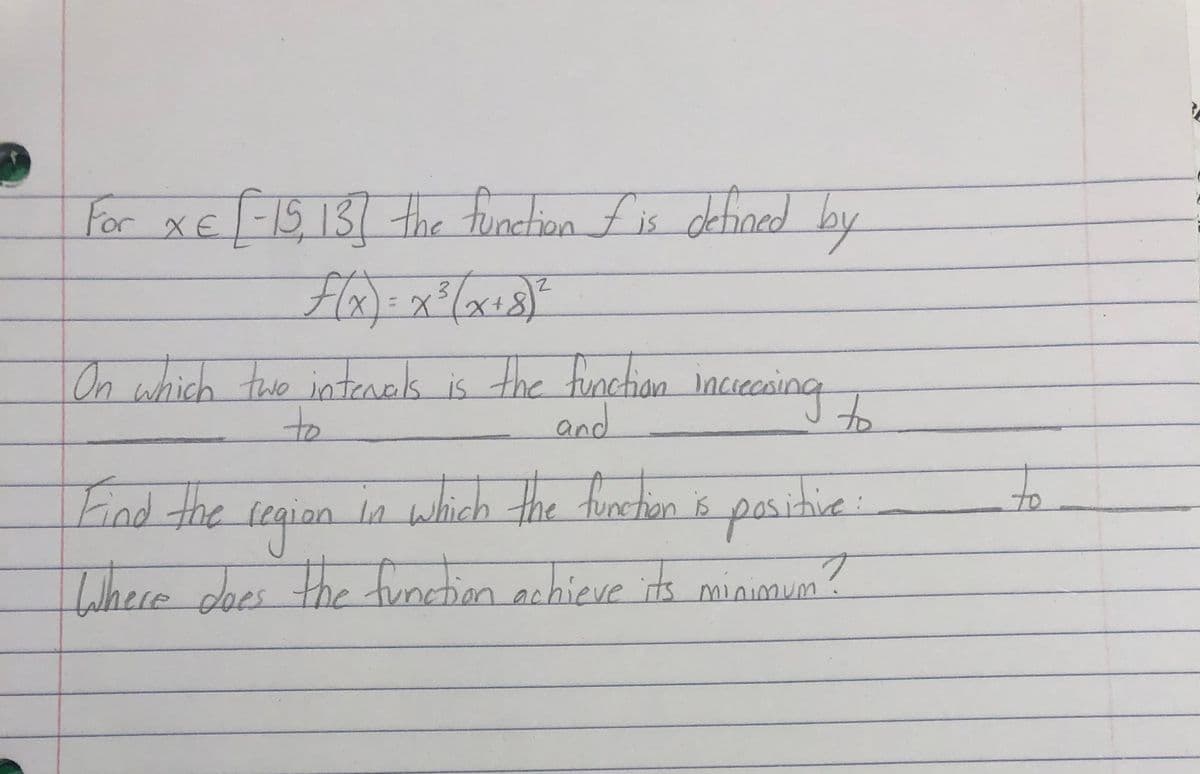 For x ∈ [-15, 13] the function f is defined by
f(x) = x³(x+8)²
On which two intervals is the function increasing
___ to ___ and ___ to ___
Find the region in which the function is positive: ___ to ___
Where does the function achieve its minimum?